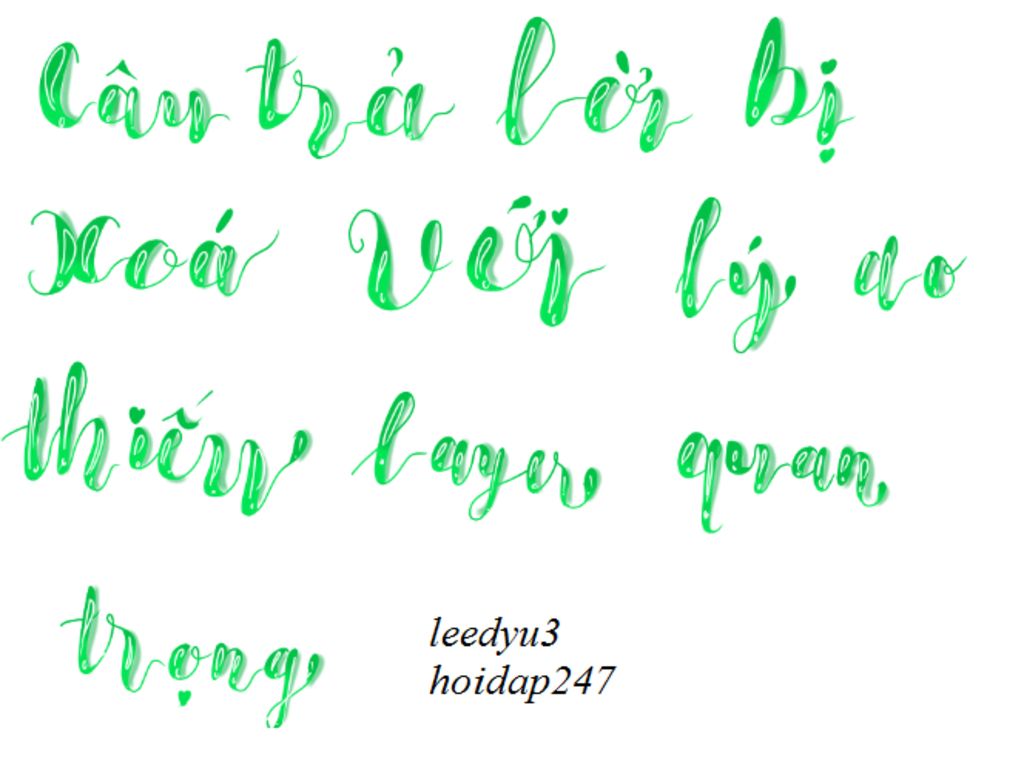 Câu trả lời bị
Xoá Với lý do
thiếu layer quan
trọng
leedyu3
hoidap247